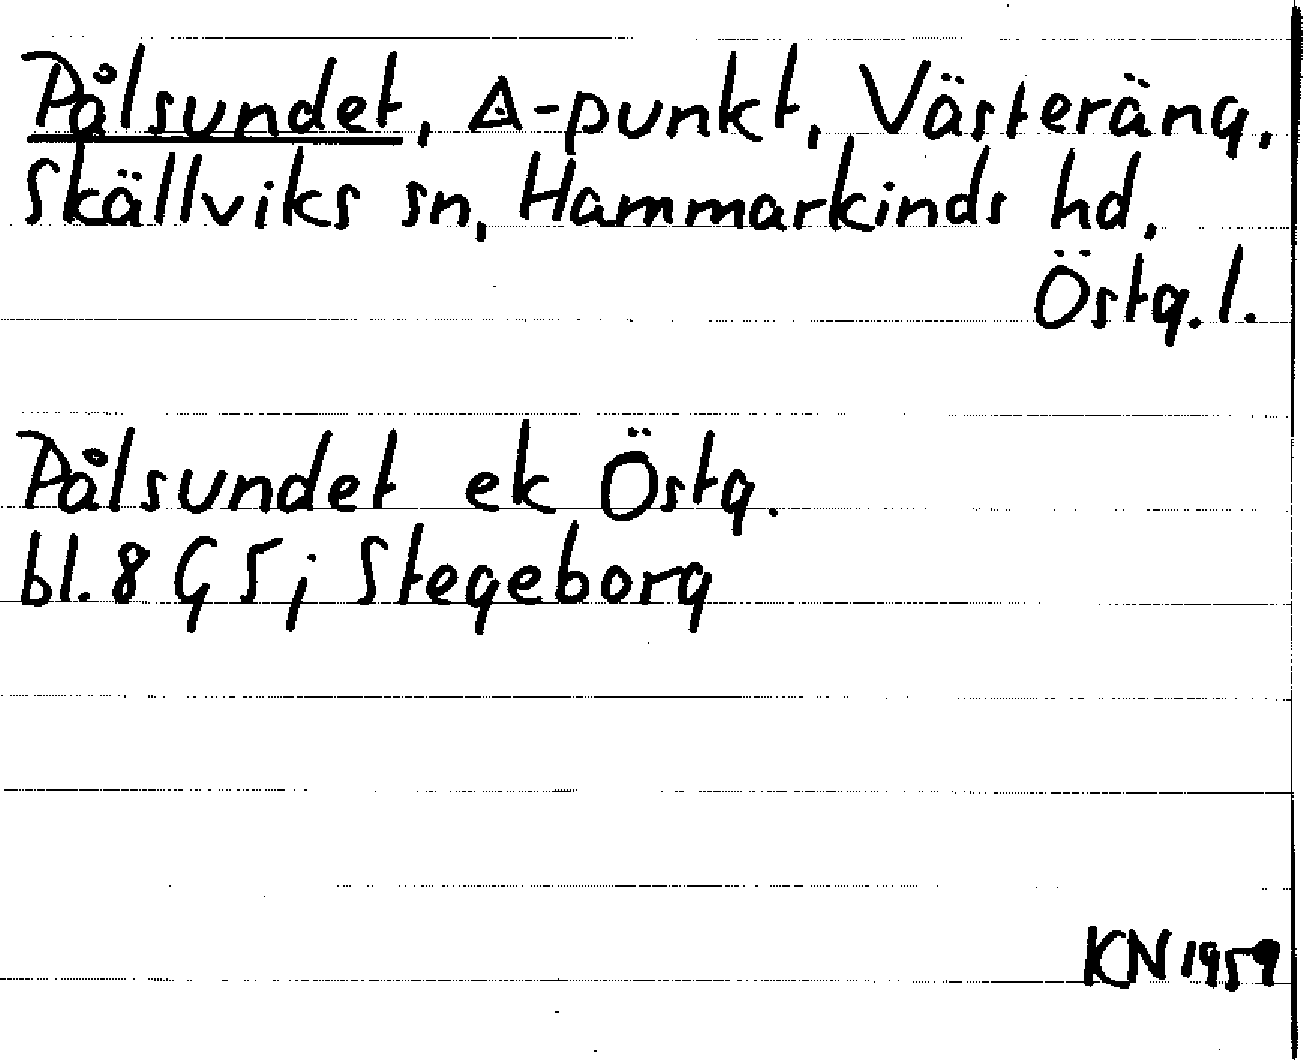 Pålsundet, △-punkt, Västeräng,
Skällviks sn, Hammarkinds hd,
Östg. l.
Pålsundet ek Östg.
bl. 8 G 5 j Stegeborg
KN 1959